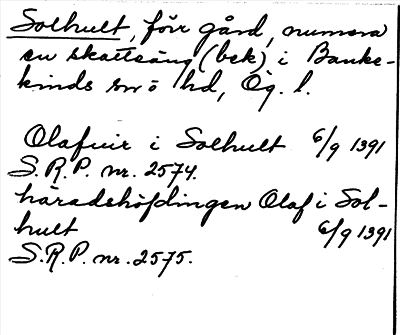 Solhult, förr gård, numera
en skattsäng (bek) i Banke-
kinds sn o hd, Ög. l.
Olafuir i Solhult 6/9 1391
S.R.P. nr. 2574.
häradshöfdingen Olaf i Sol-
hult 6/9 1391
S.R.P. nr. 2575.